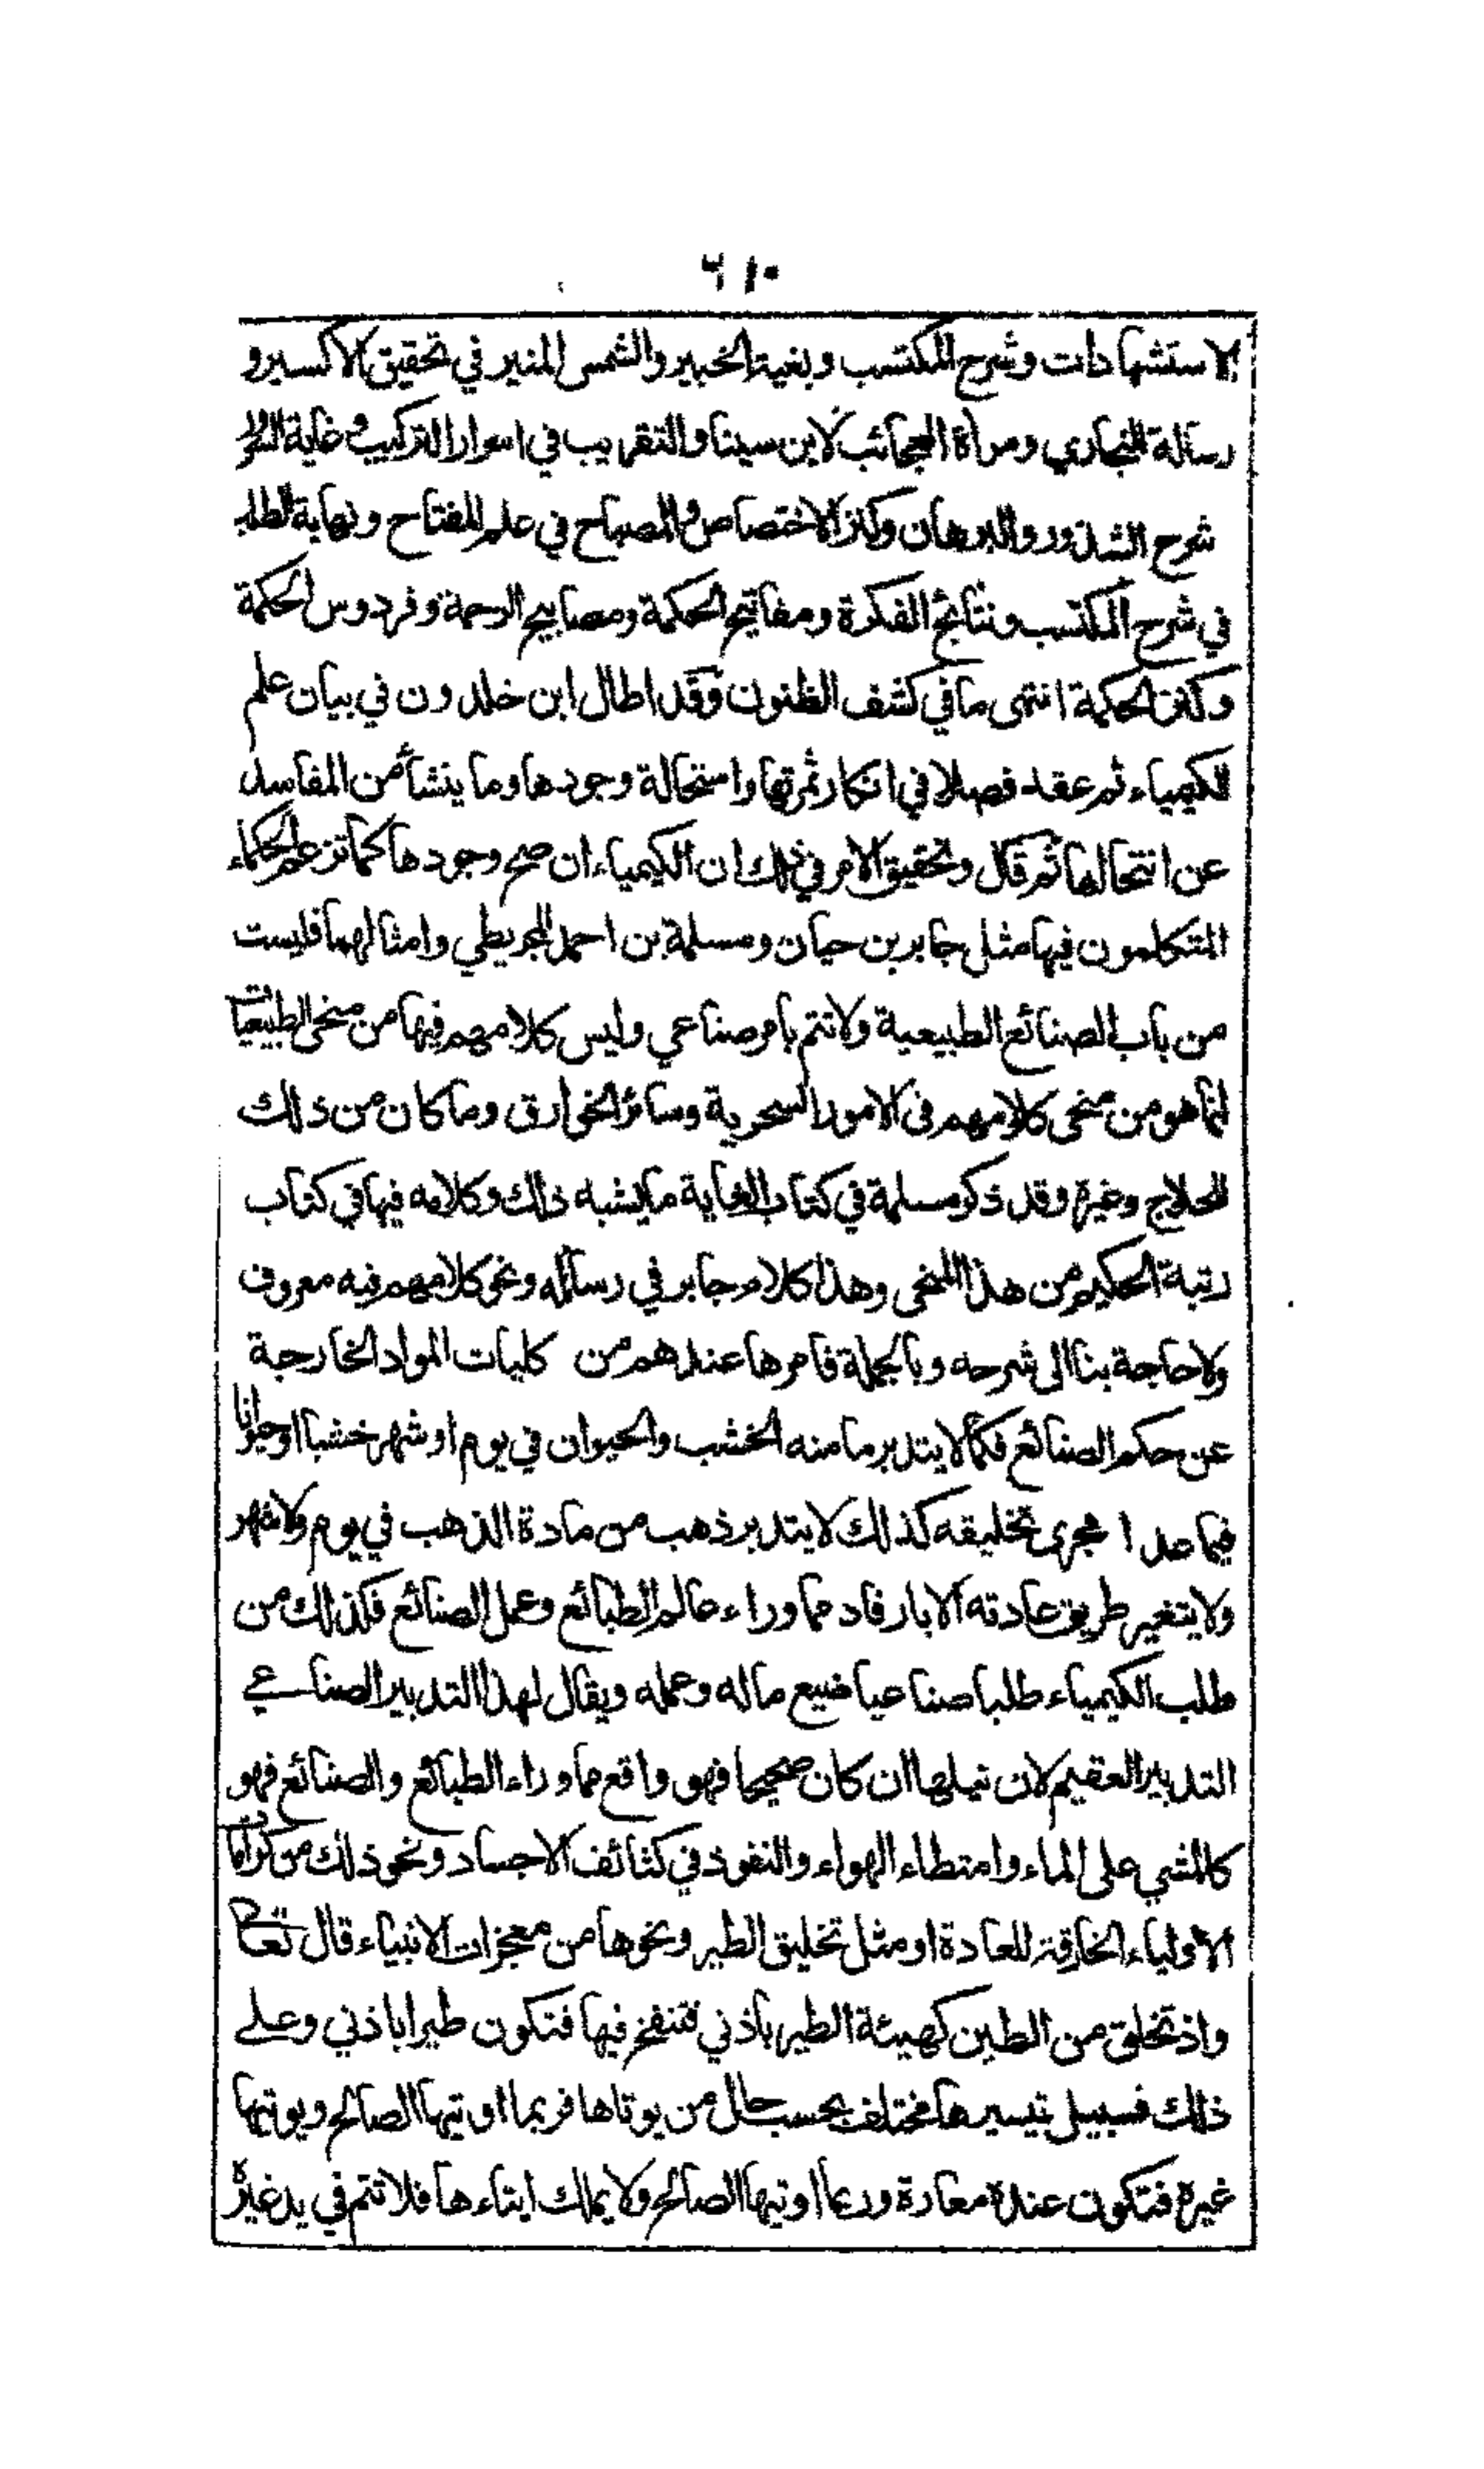 ٦١٠
الاستشهادات وشرح المكتسب وبغية الخبير والشمس المنير في تحقيق الاكسير و
رسالة البخاري ومرأة العجائب لابن سينا والتقريب في اسرار التركيب وغاية السرور
شرح الشذور والبرهان وكنز الاختصاص والمصباح في علم المفتاح ونهاية الطلب
في شرح المكتسب ونتائج الفكرة ومفاتيح الحكمة ومصابيح الرحمة وفردوس الحكمة
وكنز الحكمة انتهى ما في كشف الظنون وقد اطال ابن خلدون في بيان علم
الكيمياء ثم عقد فصلا في انكار ثمرتها واستحالة وجودها وما ينشأ من المفاسد
عن انتحالها ثم قال وتحقيق الامر في ذلك ان الكيمياء ان صح وجودها كما تزعم الحكماء
المتكلمون فيها مثل جابر بن حيان ومسلمة بن احمد المجريطي وامثالهما فليست
من باب الصنائع الطبيعية ولا تتم بامر صناعي وليس كلامهم فيها من منحى الطبيعيات
انما هو من منحى كلامهم في الامور السحرية وسائر الخوارق وما كان من ذلك
للحلاج وغيره وقد ذكر مسلمة في كتاب الغاية ما يشبه ذلك وكلامه فيها في كتاب
رتبة الحكيم من هذا المنحى وهذا كلام جابر في رسائله ونحو كلامهم فيه معروف
ولا حاجة بنا الى شرحه وبالجملة فامرها عندهم من كليات المواد الخارجة
عن حكم الصنائع فكما لا يتدبر ما منه الخشب والحيوان في يوم او شهر خشبا او حيوانا
فيما عدا مجرى تخليقه كذلك لا يتدبر ذهب من مادة الذهب في يوم ولا شهر
ولا يتغير طريق عادته الا بارفاد مما وراء عالم الطبائع وعمل الصنائع فكذلك من
طلب الكيمياء طلبا صناعيا ضيع ماله وعمله ويقال لهذا التدبير الصناعي
التدبير العقيم لان نيلها ان كان صحيحا فهو واقع مما وراء الطبائع والصنائع فهو
كالمشي على الماء وامتطاء الهواء والنفوذ في كثائف الاجساد ونحو ذلك من كرامات
الاولياء الخارقة للعادة او مثل تخليق الطير ونحوها من معجزات الانبياء قال تعالى
واذ تخلق من الطين كهيئة الطير باذني فتنفخ فيها فتكون طيرا باذني وعلى
ذلك فسبيل تيسيرها مختلف بحسب حال من يوتاها فربما اوتيها الصالح ويوتيها
غيره فتكون عنده معارة وربما اوتيها الصالح ولا يملك ايتاءها فلا تتم في يد غيره